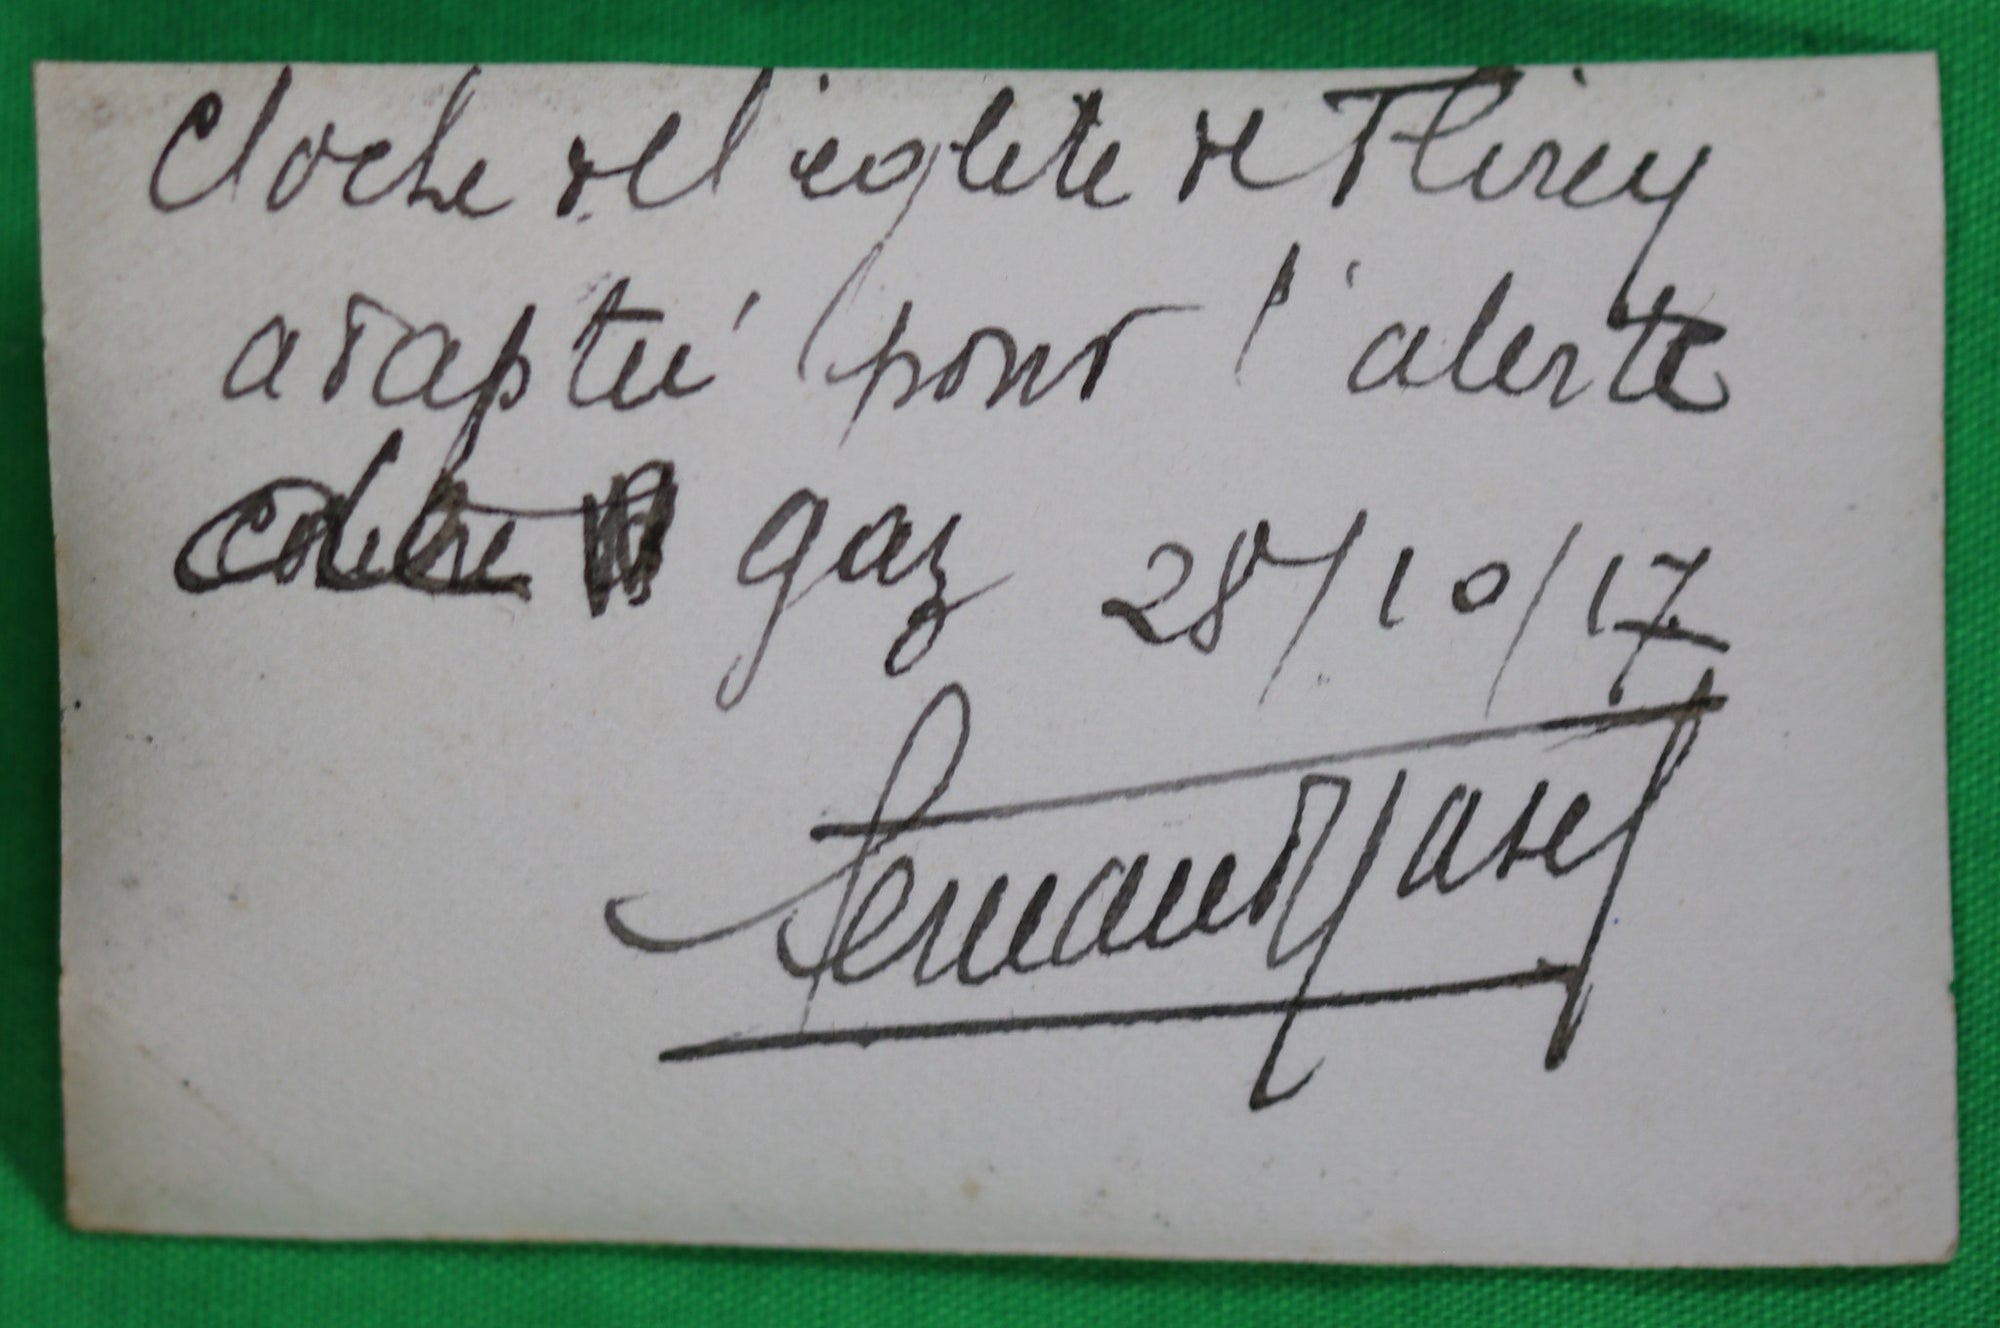 Cloche de l'eglise de Flirey
adaptée pour l'alerte
contre gaz 28/10/17
Fernand